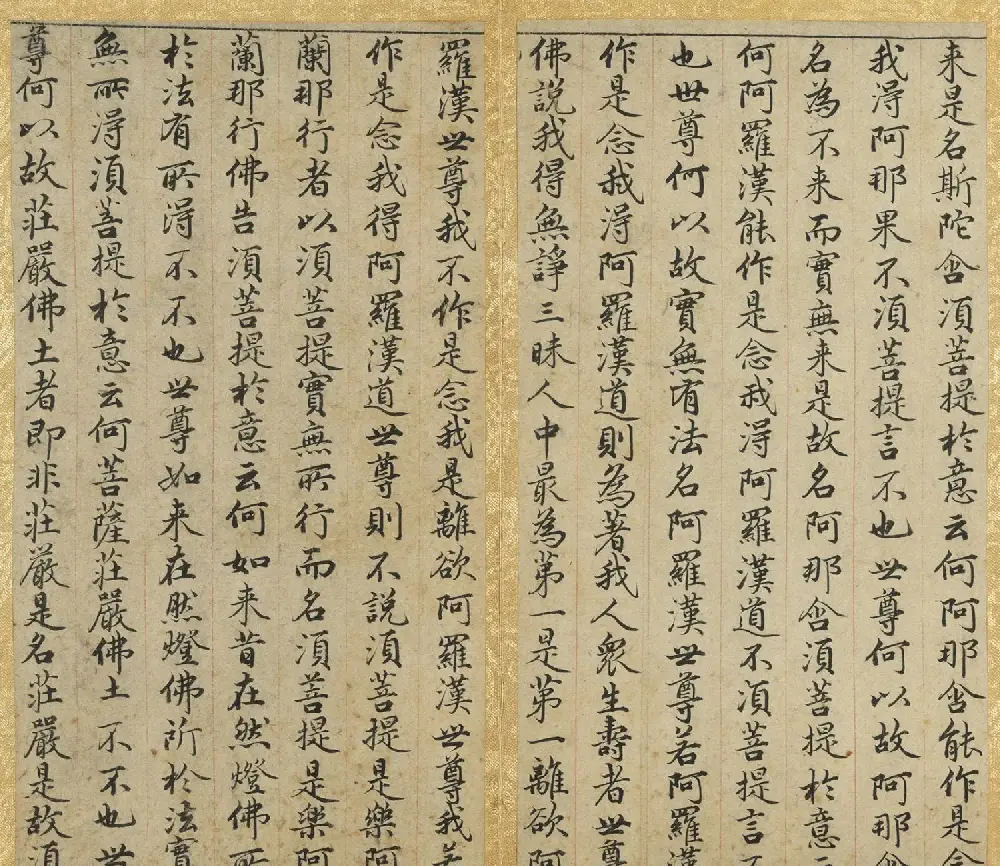 来是名斯陀含須菩提於意云何阿那含能作是念
我得阿那果不須菩提言不也世尊何以故阿那含
名為不来而實無来是故名阿那含須菩提於意
何阿羅漢能作是念我得阿羅漢道不須菩提言不
也世尊何以故實無有法名阿羅漢世尊若阿羅漢
作是念我得阿羅漢道則為著我人衆生壽者世尊
佛説我得無諍三昧人中最為第一是第一離欲阿
羅漢世尊我不作是念我是離欲阿羅漢世尊我若
作是念我得阿羅漢道世尊則不説須菩提是樂阿
蘭那行者以須菩提實無所行而名須菩提是樂阿
蘭那行佛告須菩提於意云何如来昔在然燈佛所
於法有所得不不也世尊如来在然燈佛所於法實
無所得須菩提於意云何菩薩莊嚴佛土不不也世
尊何以故莊嚴佛土者即非莊嚴是名莊嚴是故須